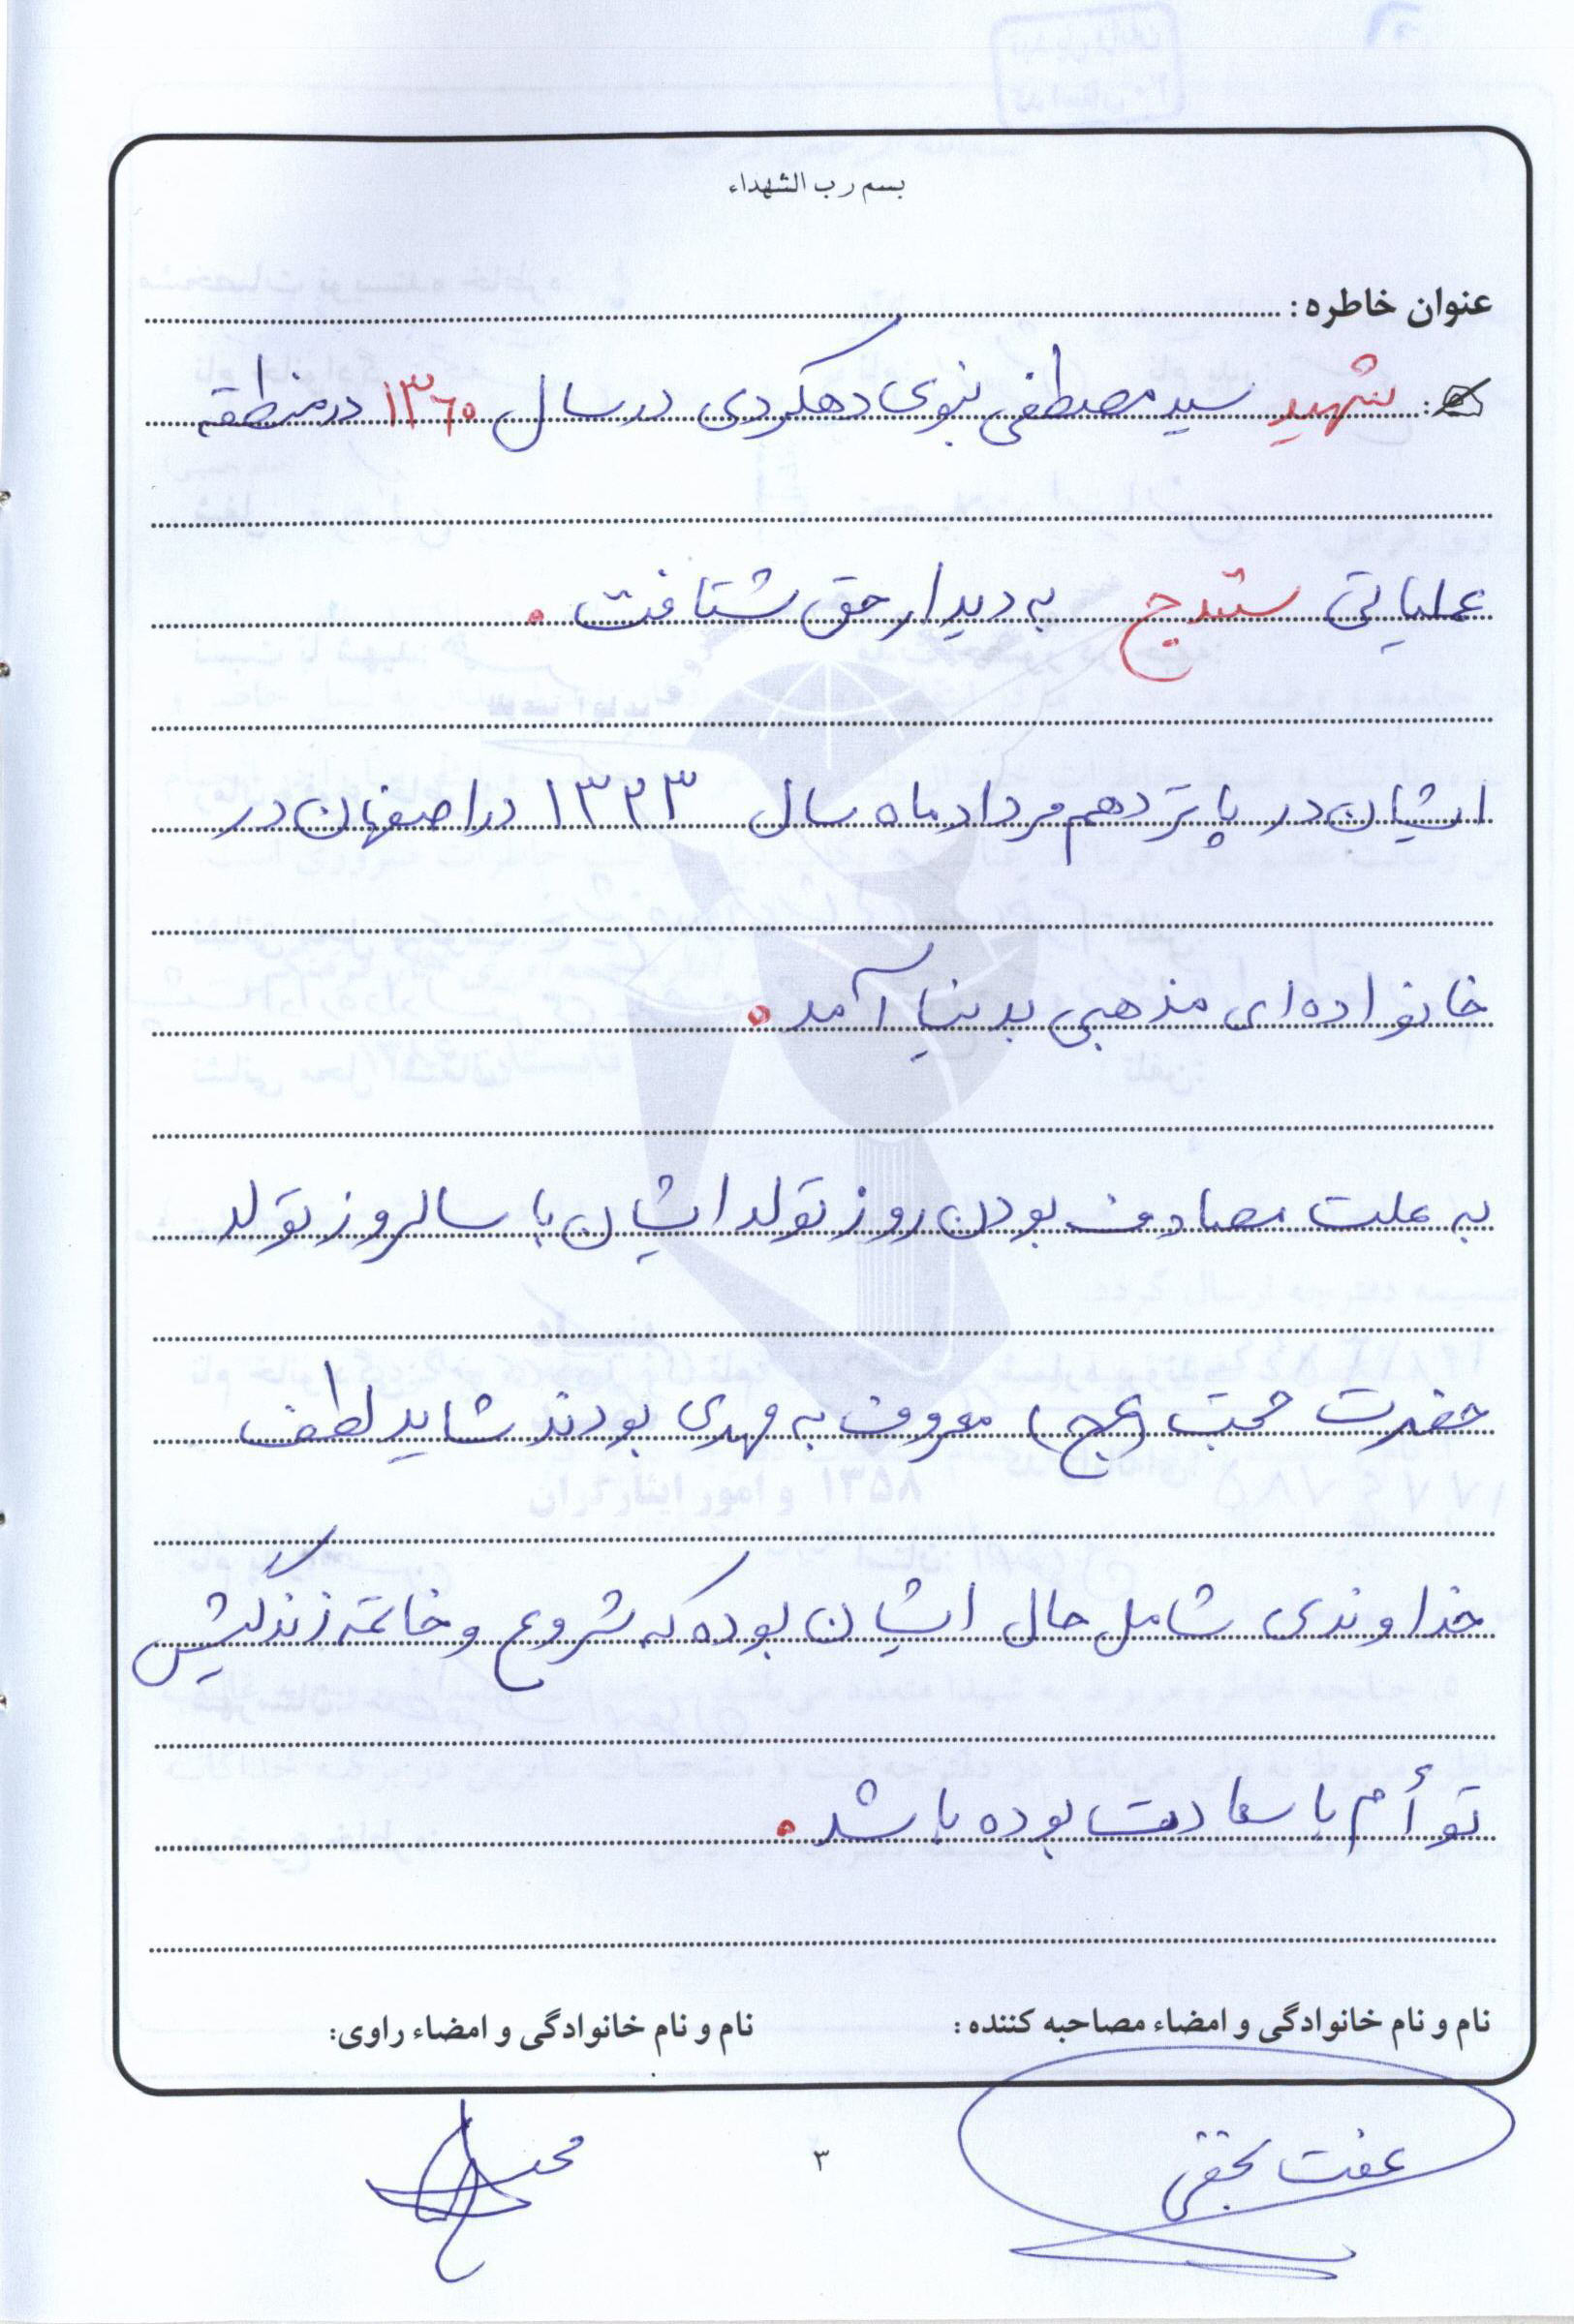 بسم رب الشهداء
عنوان خاطره:
شهید سید مصطفی نبوی دهکردی در سال ۱۳۶۰ در منطقه
عملیاتی سنندج به دیدار حق شتافت.
ایشان در پانزدهم مرداد ماه سال ۱۳۳۳ در اصفهان در
خانواده ای مذهبی بدنیا آمد.
به علت مصادف بودن روز تولد ایشان با سالروز تولد
حضرت حجت (عج) معروف به مهدی بودند شاید لطف
خداوندی شامل حال ایشان بوده که شروع و خاتمه زندگیش
توأم با سعادت بوده باشد.
نام و نام خانوادگی و امضاء مصاحبه کننده:
نام و نام خانوادگی و امضاء راوی:
عفت
۳